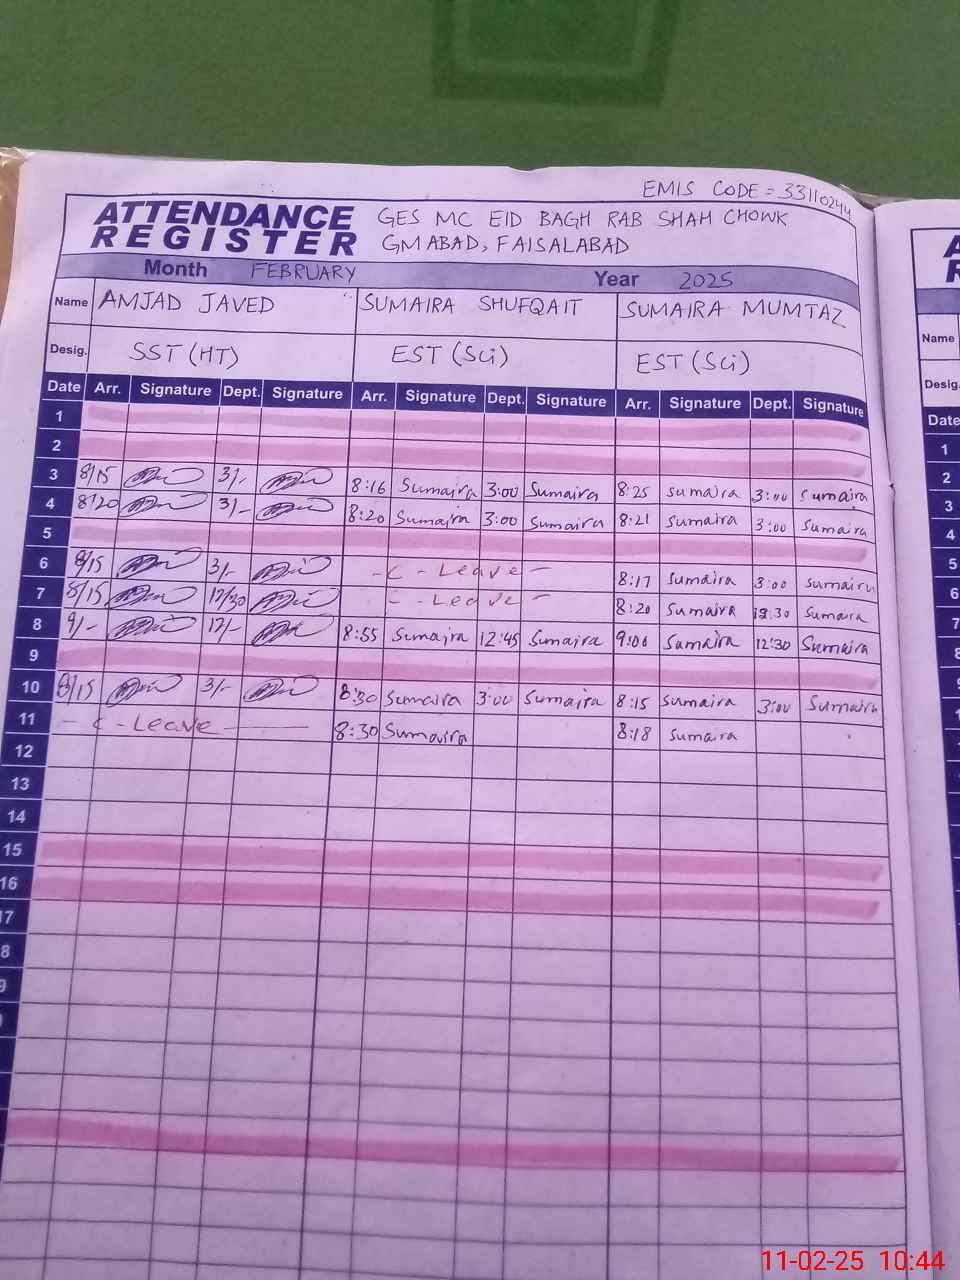 EMIS CODE = 33110244
ATTENDANCE REGISTER
GES MC EID BAGH RAB SHAH CHOWK
GMABAD, FAISALABAD
Month FEBRUARY Year 2025
Name AMJAD JAVED SUMAIRA SHUFQAIT SUMAIRA MUMTAZ
Desig. SST (HT) EST (Sci) EST (Sci)
Date Arr. Signature Dept. Signature Arr. Signature Dept. Signature Arr. Signature Dept. Signature
1
2
3 8/15 3/- 8:16 Sumaira 3:00 Sumaira 8:25 Sumaira 3:00 Sumaira
4 8/20 3/- 8:20 Sumaira 3:00 Sumaira 8:21 Sumaira 3:00 Sumaira
5
6 8/15 3/- - C - Leave - 8:17 Sumaira 3:00 Sumaira
7 8/15 12/30 - Leave - 8:20 Sumaira 12:30 Sumaira
8 9/- 12/- 8:55 Sumaira 12:45 Sumaira 9:00 Sumaira 12:30 Sumaira
9
10 8/15 3/- 8:30 Sumaira 3:00 Sumaira 8:15 Sumaira 3:00 Sumaira
11 - C - Leave - 8:30 Sumaira 8:18 Sumaira
12
13
14
15
16
17
8
9
A
R
Name
Desig.
Date
1
2
3
4
5
6
7
8
9
10
11
11-02-25 10:44